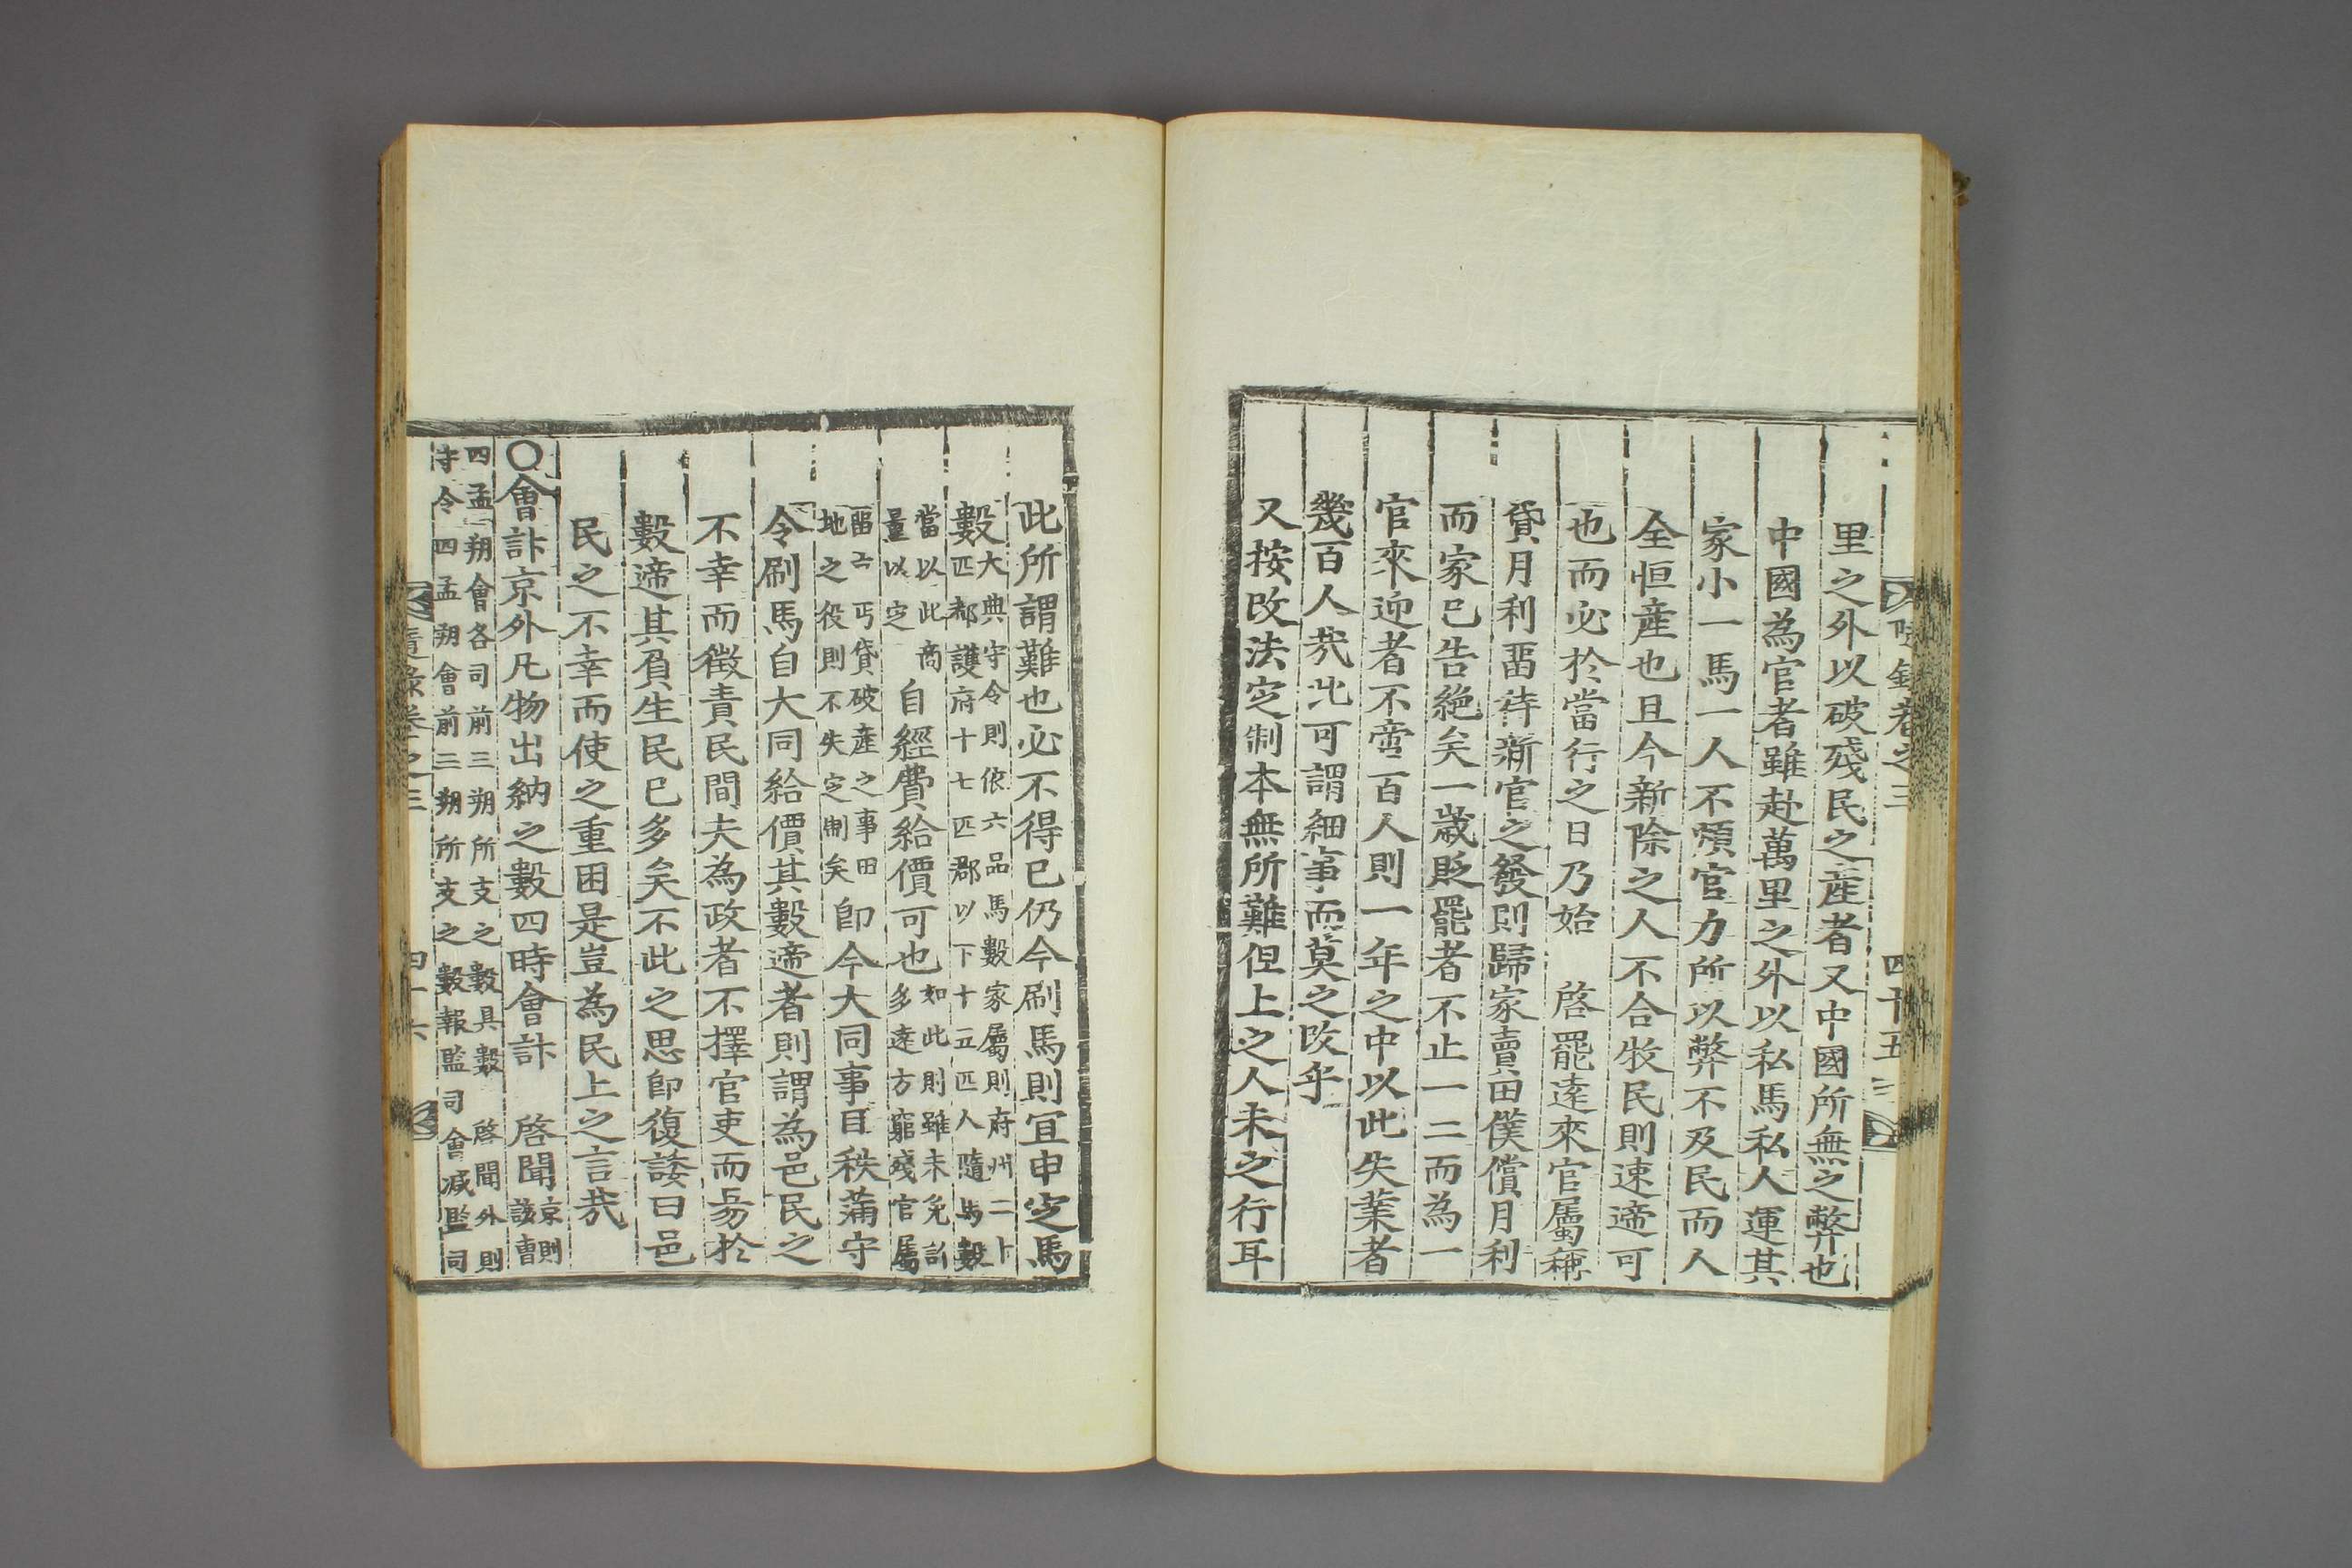 里之外以破殘民之産者又中國所無之弊也
中國為官者雖赴萬里之外以私馬私人運其
家小一馬一人不煩官力所以弊不及民而人
全恒産也且今新除之人不合牧民則速遞可
也而必於當行之日乃始 啓罷遠來官屬稱
貸月利留待新官之發則歸家賣田僕償月利
而家已告絶矣一歳貶罷者不止一二而為一
官來迎者不啻百人則一年之中以此失業者
幾百人㢤此可謂細事而莫之改乎
又按改法定制本無所難但上之人未之行耳
此所謂難也必不得已仍今刷馬則宜申定馬
數
大典守令則依六品馬數家屬則府州二十
匹都護府十七匹郡以下十五匹人隨馬數
當以此商
量以定
自經費給價可也
如此則雖未免
多遠方窮殘官屬
丐貸破産之事田
地之役則不失定制矣
即今大同事目秩蒲守
令刷馬自大同給價其數遞者則謂為邑民之
不幸而徵責民間夫為政者不擇官吏而易於
數遞其負生民已多矣不此之思即復諉曰邑
民之不幸而使之重困是豈為民上之言㢤
〇會計京外凡物出納之數四時會計 啓聞
京則
該曹
四孟朔會各司前三朔所支之數具數 啓聞外則
守令四孟朔會前三朔所支之數報監司會減監司
隨錄卷之三 四十五
卷之三 四十六